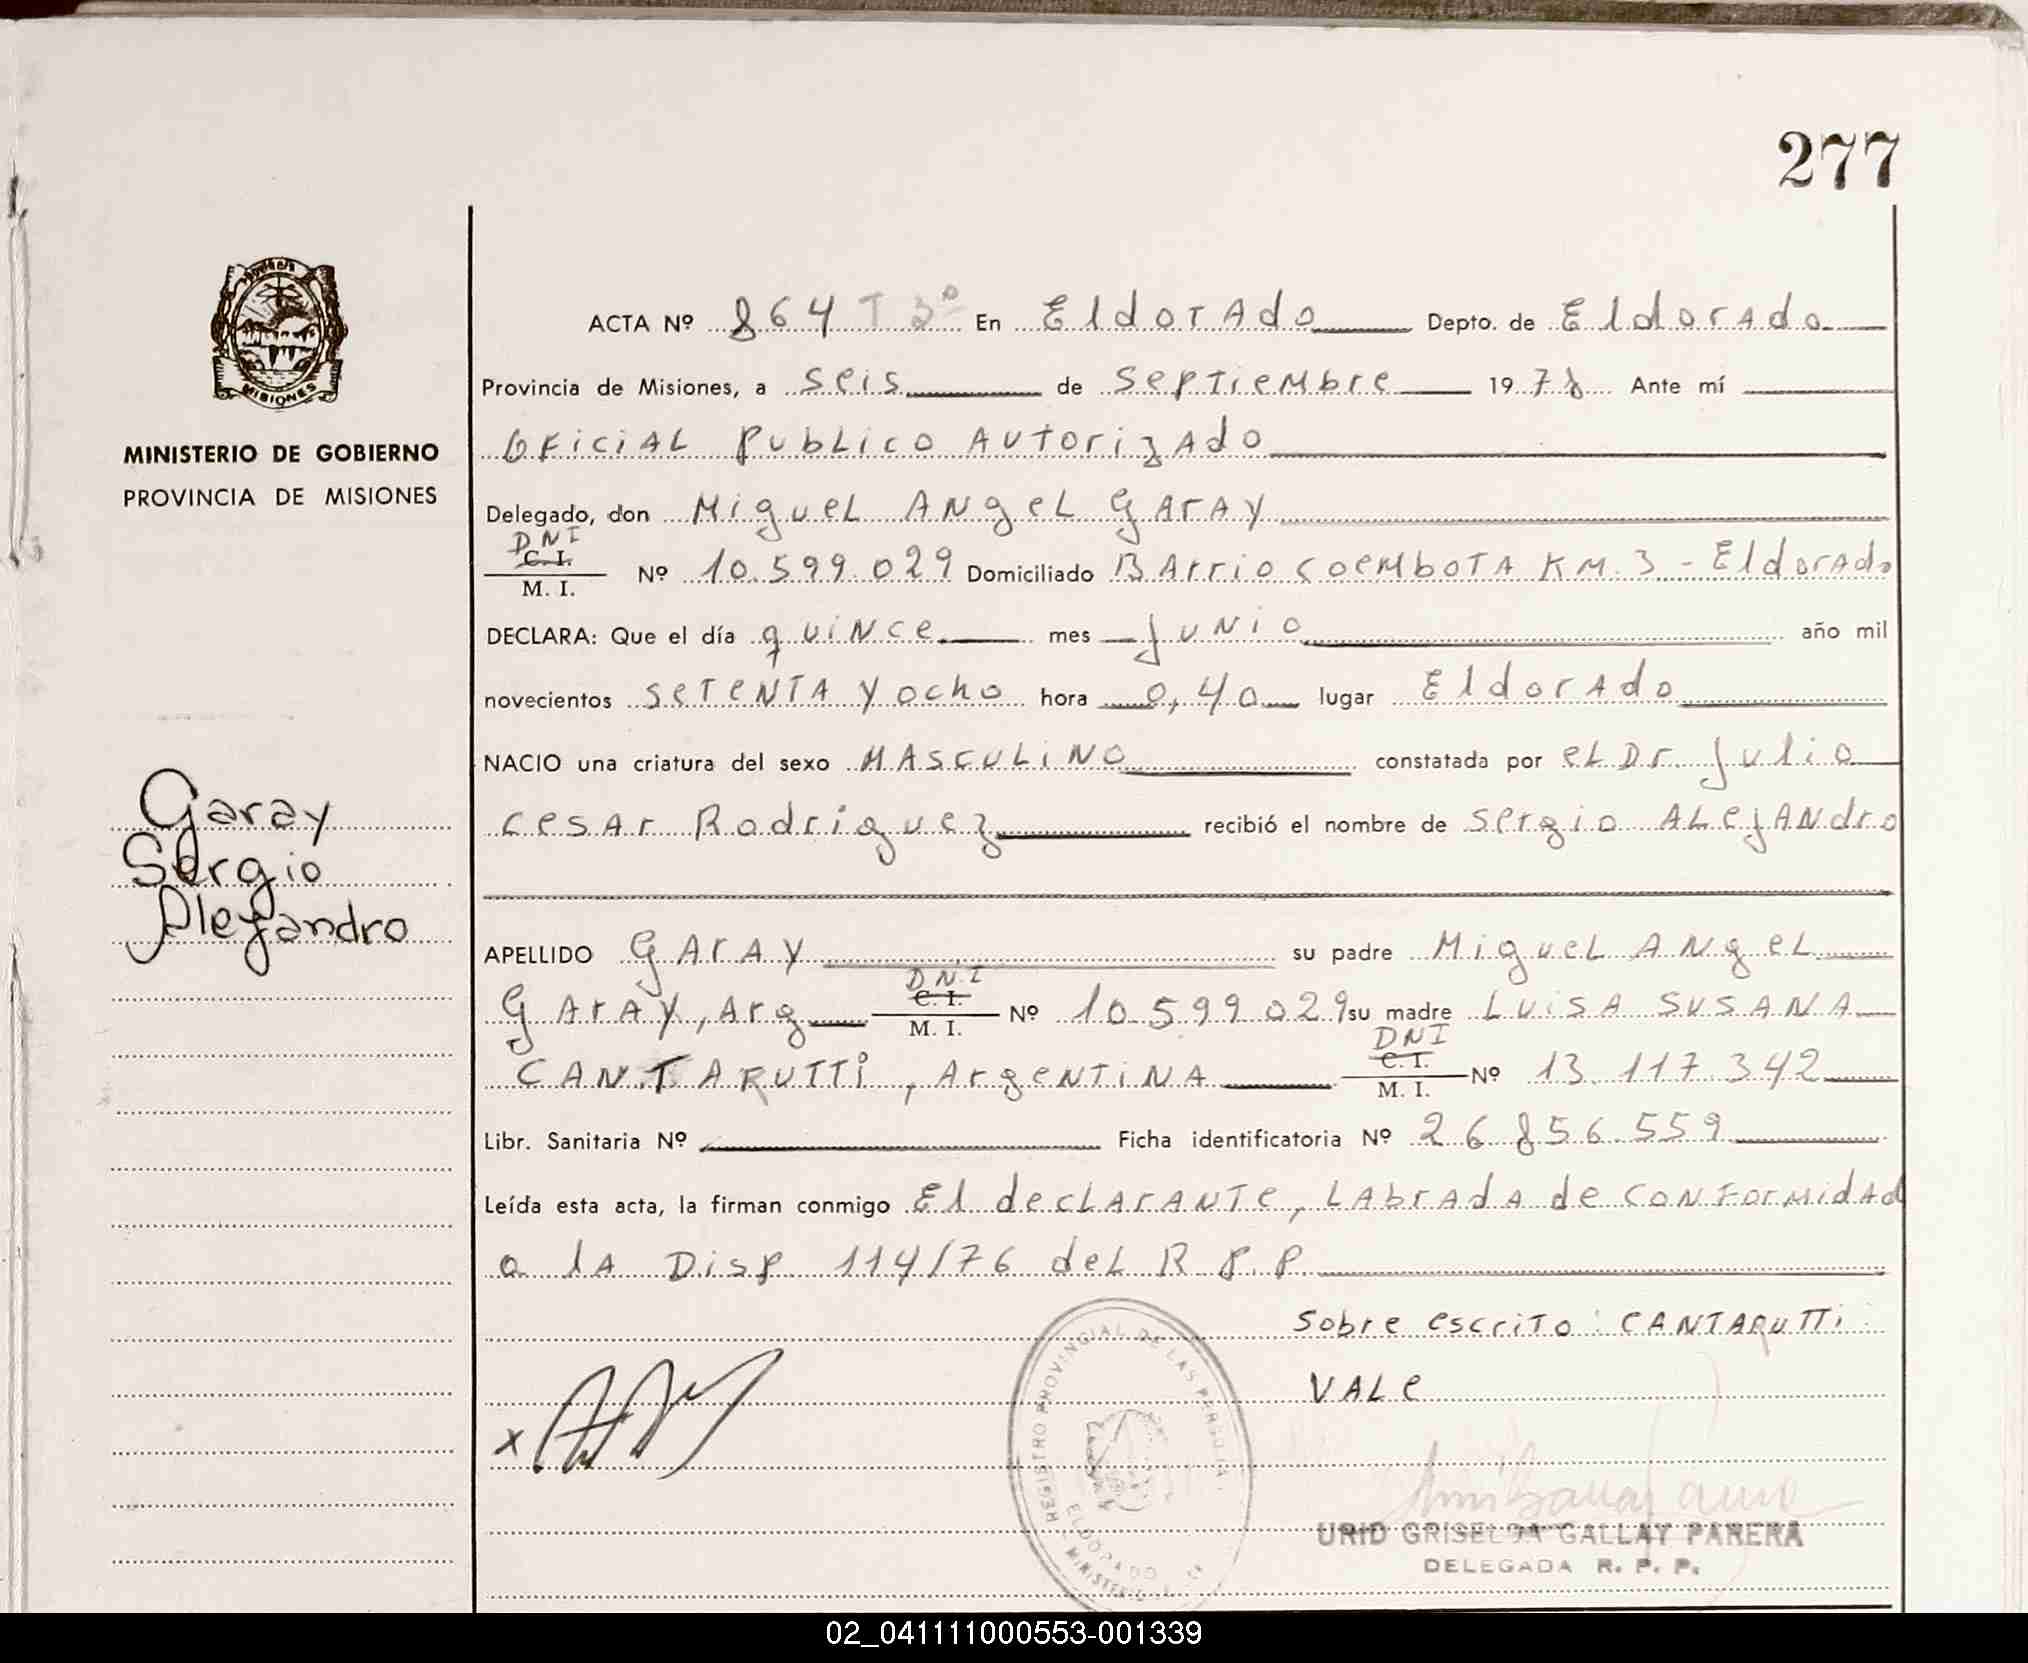 277
MISIONES
MINISTERIO DE GOBIERNO
PROVINCIA DE MISIONES
Garay
Sergio
Alejandro
ACTA Nº 864 T 3º En Eldorado Depto. de Eldorado
Provincia de Misiones, a seis de septiembre 1978 Ante mí
Oficial publico autorizado
Delegado, don Miguel Angel Garay
DNI
C. I.
M. I. Nº 10.599.029 Domiciliado Barrio Coembota KM. 3 - Eldorado
DECLARA: Que el día quince mes junio año mil
novecientos setenta y ocho hora 0,40 lugar Eldorado
NACIO una criatura del sexo masculino constatada por el Dr. Julio
Cesar Rodriguez recibió el nombre de Sergio Alejandro
APELLIDO Garay su padre Miguel Angel
Garay, Arg D.N.I C. I. M. I. Nº 10.599.029 su madre Luisa Susana
Cantarutti, Argentina DNI C. I. M. I. Nº 13.117.342
Libr. Sanitaria Nº Ficha identificatoria Nº 26.856.559
Leída esta acta, la firman conmigo El declarante, labrada de conformidad
a la Disp. 114/76 del R.P.P
Sobre escrito: Cantarutti:
Vale
x
REGISTRO PROVINCIAL DE LAS PERSONAS
ELDORADO
URID GRISELDA GALLAY PARERA
DELEGADA R. P. P.
02_041111000553-001339